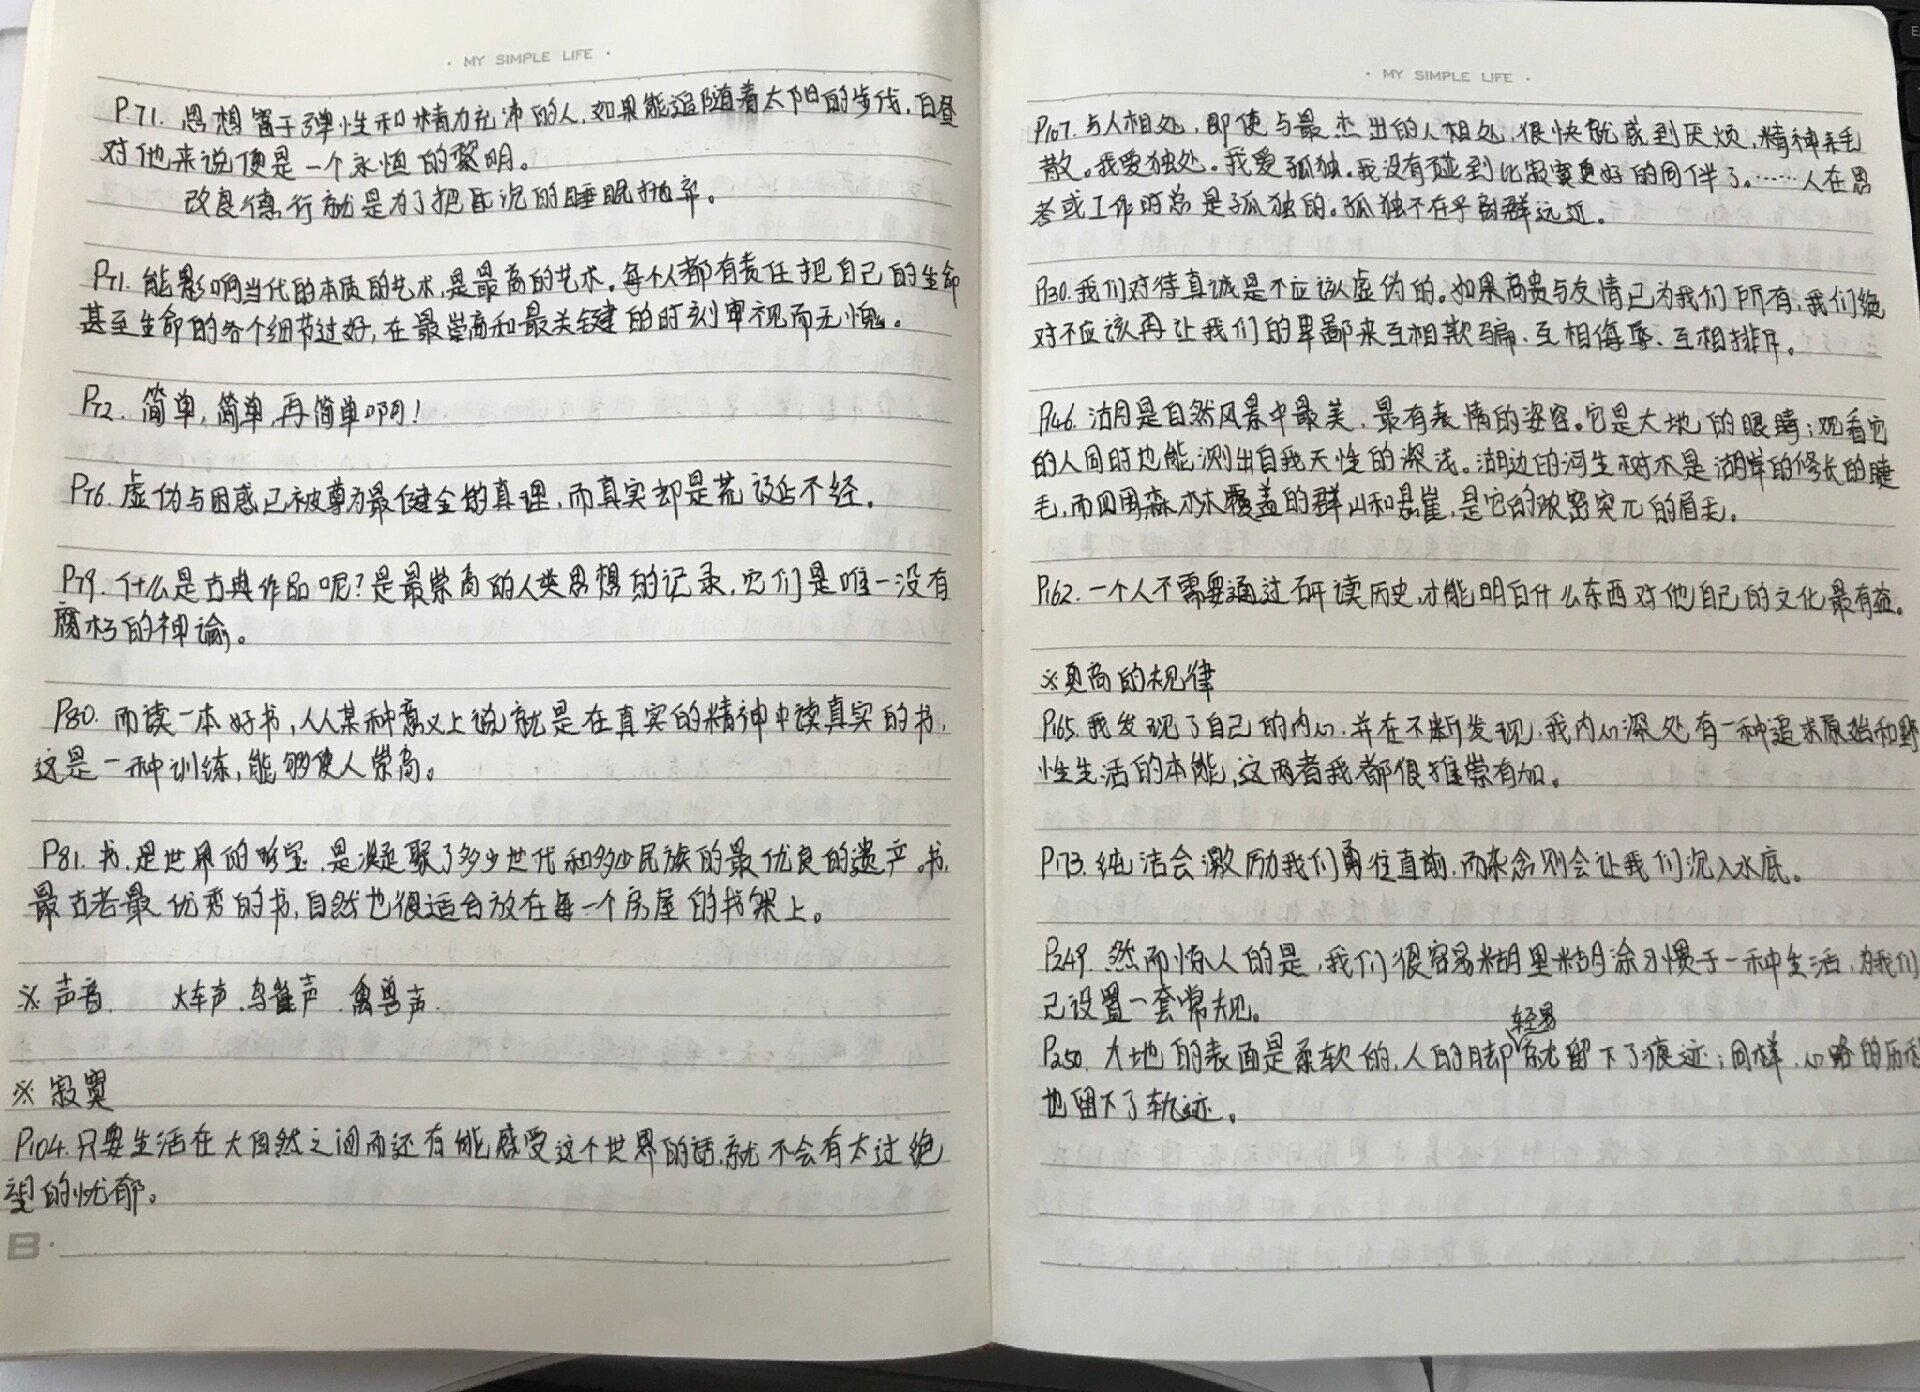 · MY SIMPLE LIFE ·
P71. 思想富于弹性和精力充沛的人，如果能追随着太阳的步伐，白昼
对他来说便是一个永恒的黎明。
改良德行就是为了把昏沉的睡眠抛弃。
P71. 能影响当代的本质的艺术，是最高的艺术。每个人都有责任把自己的生命
甚至生命的各个细节过好，在最崇高和最关键的时刻审视而无愧。
P72. 简单，简单，再简单啊！
P76. 虚伪与困惑已被尊为最健全的真理，而真实却是荒诞不经。
P79. 什么是古典作品呢？是最崇高的人类思想的记录，它们是唯一没有
腐朽的神谕。
P80. 而读一本好书，从某种意义上说就是在真实的精神中读真实的书，
这是一种训练，能够使人崇高。
P81. 书，是世界的珍宝，是凝聚了多少世代和多少民族的最优良的遗产。书，
最古老最优秀的书，自然也很适合放在每一个房屋的书架上。
※ 声音. 火车声.鸟雀声.禽兽声.
※ 寂寞
P104. 只要生活在大自然之间而还有能感受这个世界的话，就不会有太过绝
望的忧郁。
B·
· MY SIMPLE LIFE ·
P107. 与人相处，即使与最杰出的人相处，很快就感到厌烦，精神耗
散。我爱独处。我爱孤独。我没有碰到比寂寞更好的同伴了。……人在思
考或工作时总是孤独的。孤独不在乎离群远近。
P130. 我们对待真诚是不应该虚伪的。如果高贵与友情已为我们所有，我们绝
对不应该再让我们的卑鄙来互相欺骗、互相侮辱、互相排斥。
P146. 湖是自然风景中最美、最有表情的姿容。它是大地的眼睛；观看它
的人同时也能测出自我天性的深浅。湖边的河生树木是湖岸的修长的睫
毛，而四周森林覆盖的群山和悬崖，是它的浓密突兀的眉毛。
P162. 一个人不需要通过研读历史，才能明白什么东西对他自己的文化最有益。
※更高的规律
P165. 我发现了自己的内心，并在不断发现，我内心深处有一种追求原始和野
性生活的本能，这两者我都很推崇有加。
P173. 纯洁会激励我们勇往直前，而杂念则会让我们沉入水底。
P249. 然而惊人的是，我们很容易糊里糊涂习惯于一种生活，为我们
己设置一套常规。
轻易
P250. 大地的表面是柔软的，人的脚就留下了痕迹；同样，心路的历程
也留下了轨迹。